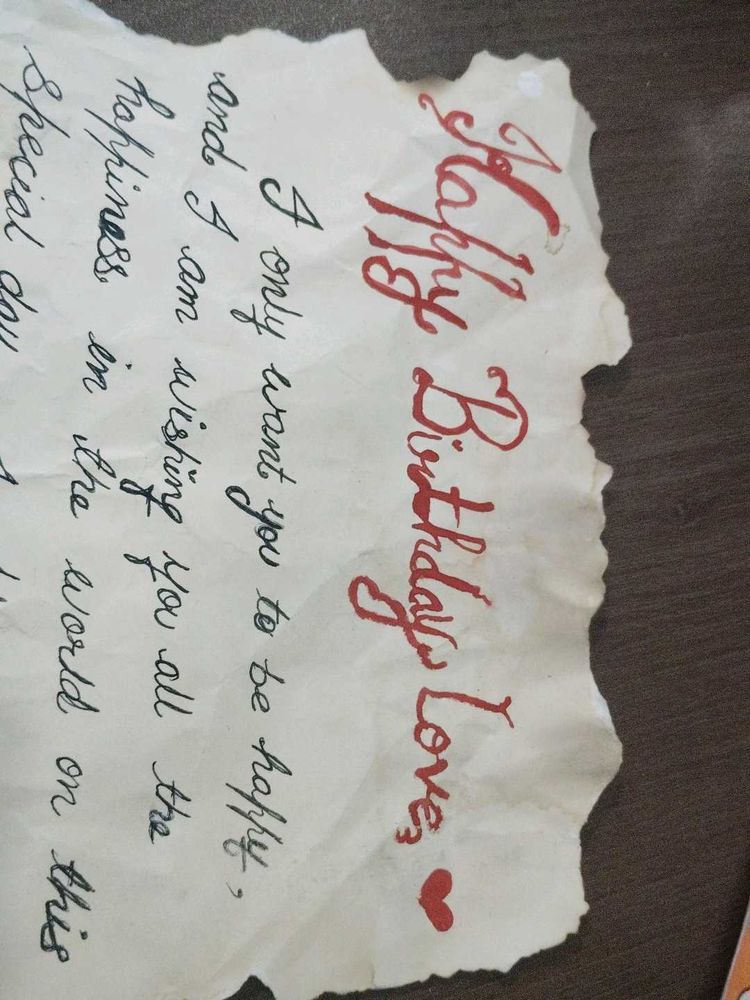 Happy Birthday Love,
I only want you to be happy,
and I am wishing you all the
happiness in the world on this
special day